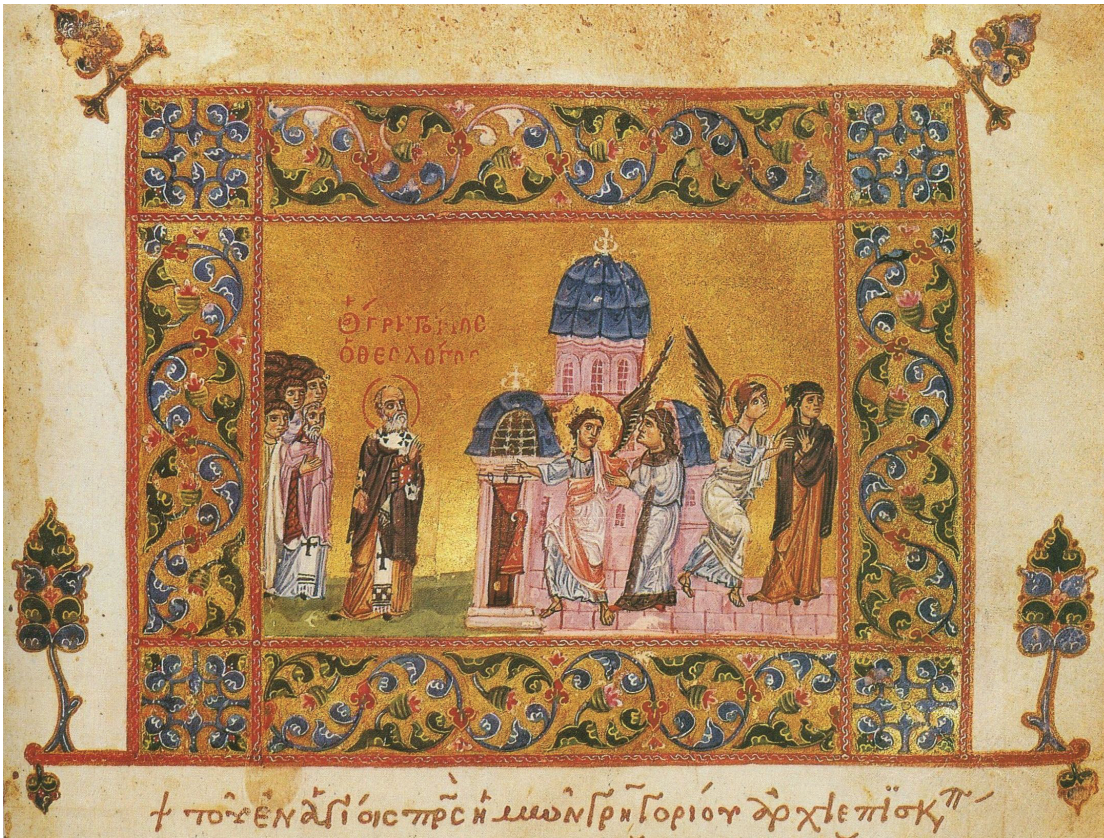 Ὁ ΓΡΗΓΌΡΙΟC
Ὁ ΘΕΟΛΌΓΟC
+ τοῦ ἐν ἁγίοις πρ̅ς ἡμῶν γρηγορίου ἀρχιεπϊσκπ